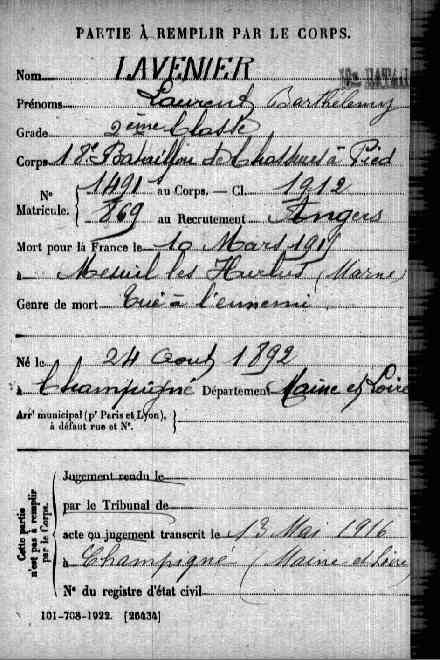 PARTIE À REMPLIR PAR LE CORPS.
Nom LAVENIER
Prénoms Laurent Barthélemy
Grade 2ème Classe
Corps 18e Bataillon de Chasseurs à Pied
N° Matricule. { 1491 au Corps. — Cl. 1912
869 au Recrutement Angers
Mort pour la France le 10 Mars 1915
à Mesnil les Hurlus (Marne)
Genre de mort Tué à l'ennemi
Né le 24 août 1892
à Champigné Département Maine et Loire
Arrt municipal (pr Paris et Lyon),
à défaut rue et N°.
Cette partie n'est pas à remplir par le Corps.
Jugement rendu le
par le Tribunal de
acte ou jugement transcrit le 13 Mai 1916
à Champigné (Maine et Loire)
N° du registre d'état civil
101-708-1922. [26434]